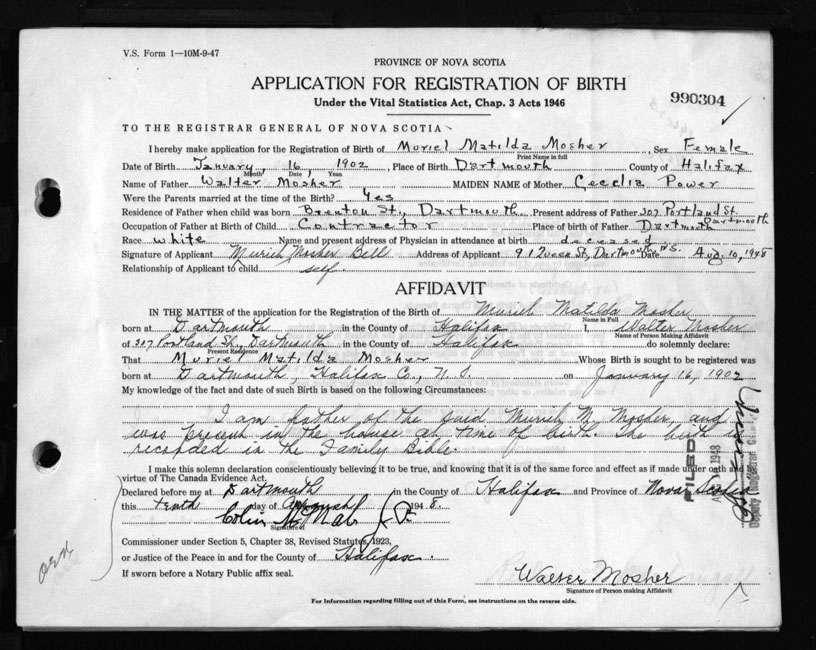 V.S. Form 1—10M-9-47
PROVINCE OF NOVA SCOTIA
APPLICATION FOR REGISTRATION OF BIRTH
990304
Under the Vital Statistics Act, Chap. 3 Acts 1946
TO THE REGISTRAR GENERAL OF NOVA SCOTIA
I hereby make application for the Registration of Birth of Muriel Matilda Mosher, Sex Female
Print Name in full
Date of Birth January, 16, 1902, Place of Birth Dartmouth County of Halifax
Month Date, Year.
Name of Father Walter Mosher MAIDEN NAME of Mother Cecelia Power
Were the Parents married at the time of Birth? Yes
Residence of Father when child was born Brenton St., Dartmouth. Present address of Father 307 Portland St. Dartmouth
Occupation of Father at Birth of Child Contractor Place of birth of Father Dartmouth
Race white Name and present address of Physician in attendance at birth deceased
Signature of Applicant Muriel Mosher Bell Address of Applicant 9 Queen St, Dartmouth N.S. Date Aug. 10, 1948
Relationship of Applicant to child self.
AFFIDAVIT
IN THE MATTER of the application for the Registration of the Birth of Muriel Matilda Mosher
Name in Full
born at Dartmouth in the County of Halifax I, Walter Mosher
Name of Person Making Affidavit
of 307 Portland St., Dartmouth in the County of Halifax do solemnly declare:
Present Residence
That Muriel Matilda Mosher Whose Birth is sought to be registered was
born at Dartmouth, Halifax Co., N.S. on January 16, 1902
My knowledge of the fact and date of such Birth is based on the following Circumstances:
I am father of the said Muriel M. Mosher, and
was present in the house at time of birth. The birth is
recorded in the Family Bible.
I make this solemn declaration conscientiously believing it to be true, and knowing that it is of the same force and effect as if made under oath and by
virtue of The Canada Evidence Act.
Declared before me at Dartmouth in the County of Halifax and Province of Nova Scotia
this tenth day of August 1948.
Colin McNab J.P.
Signature of
Commissioner under Section 5, Chapter 38, Revised Statutes, 1923,
or Justice of the Peace in and for the County of Halifax.
If sworn before a Notary Public affix seal.
Walter Mosher
Signature of Person making Affidavit
For Information regarding filling out of this Form, see instructions on the reverse side.
FILED
1948
Deputy Registrar General